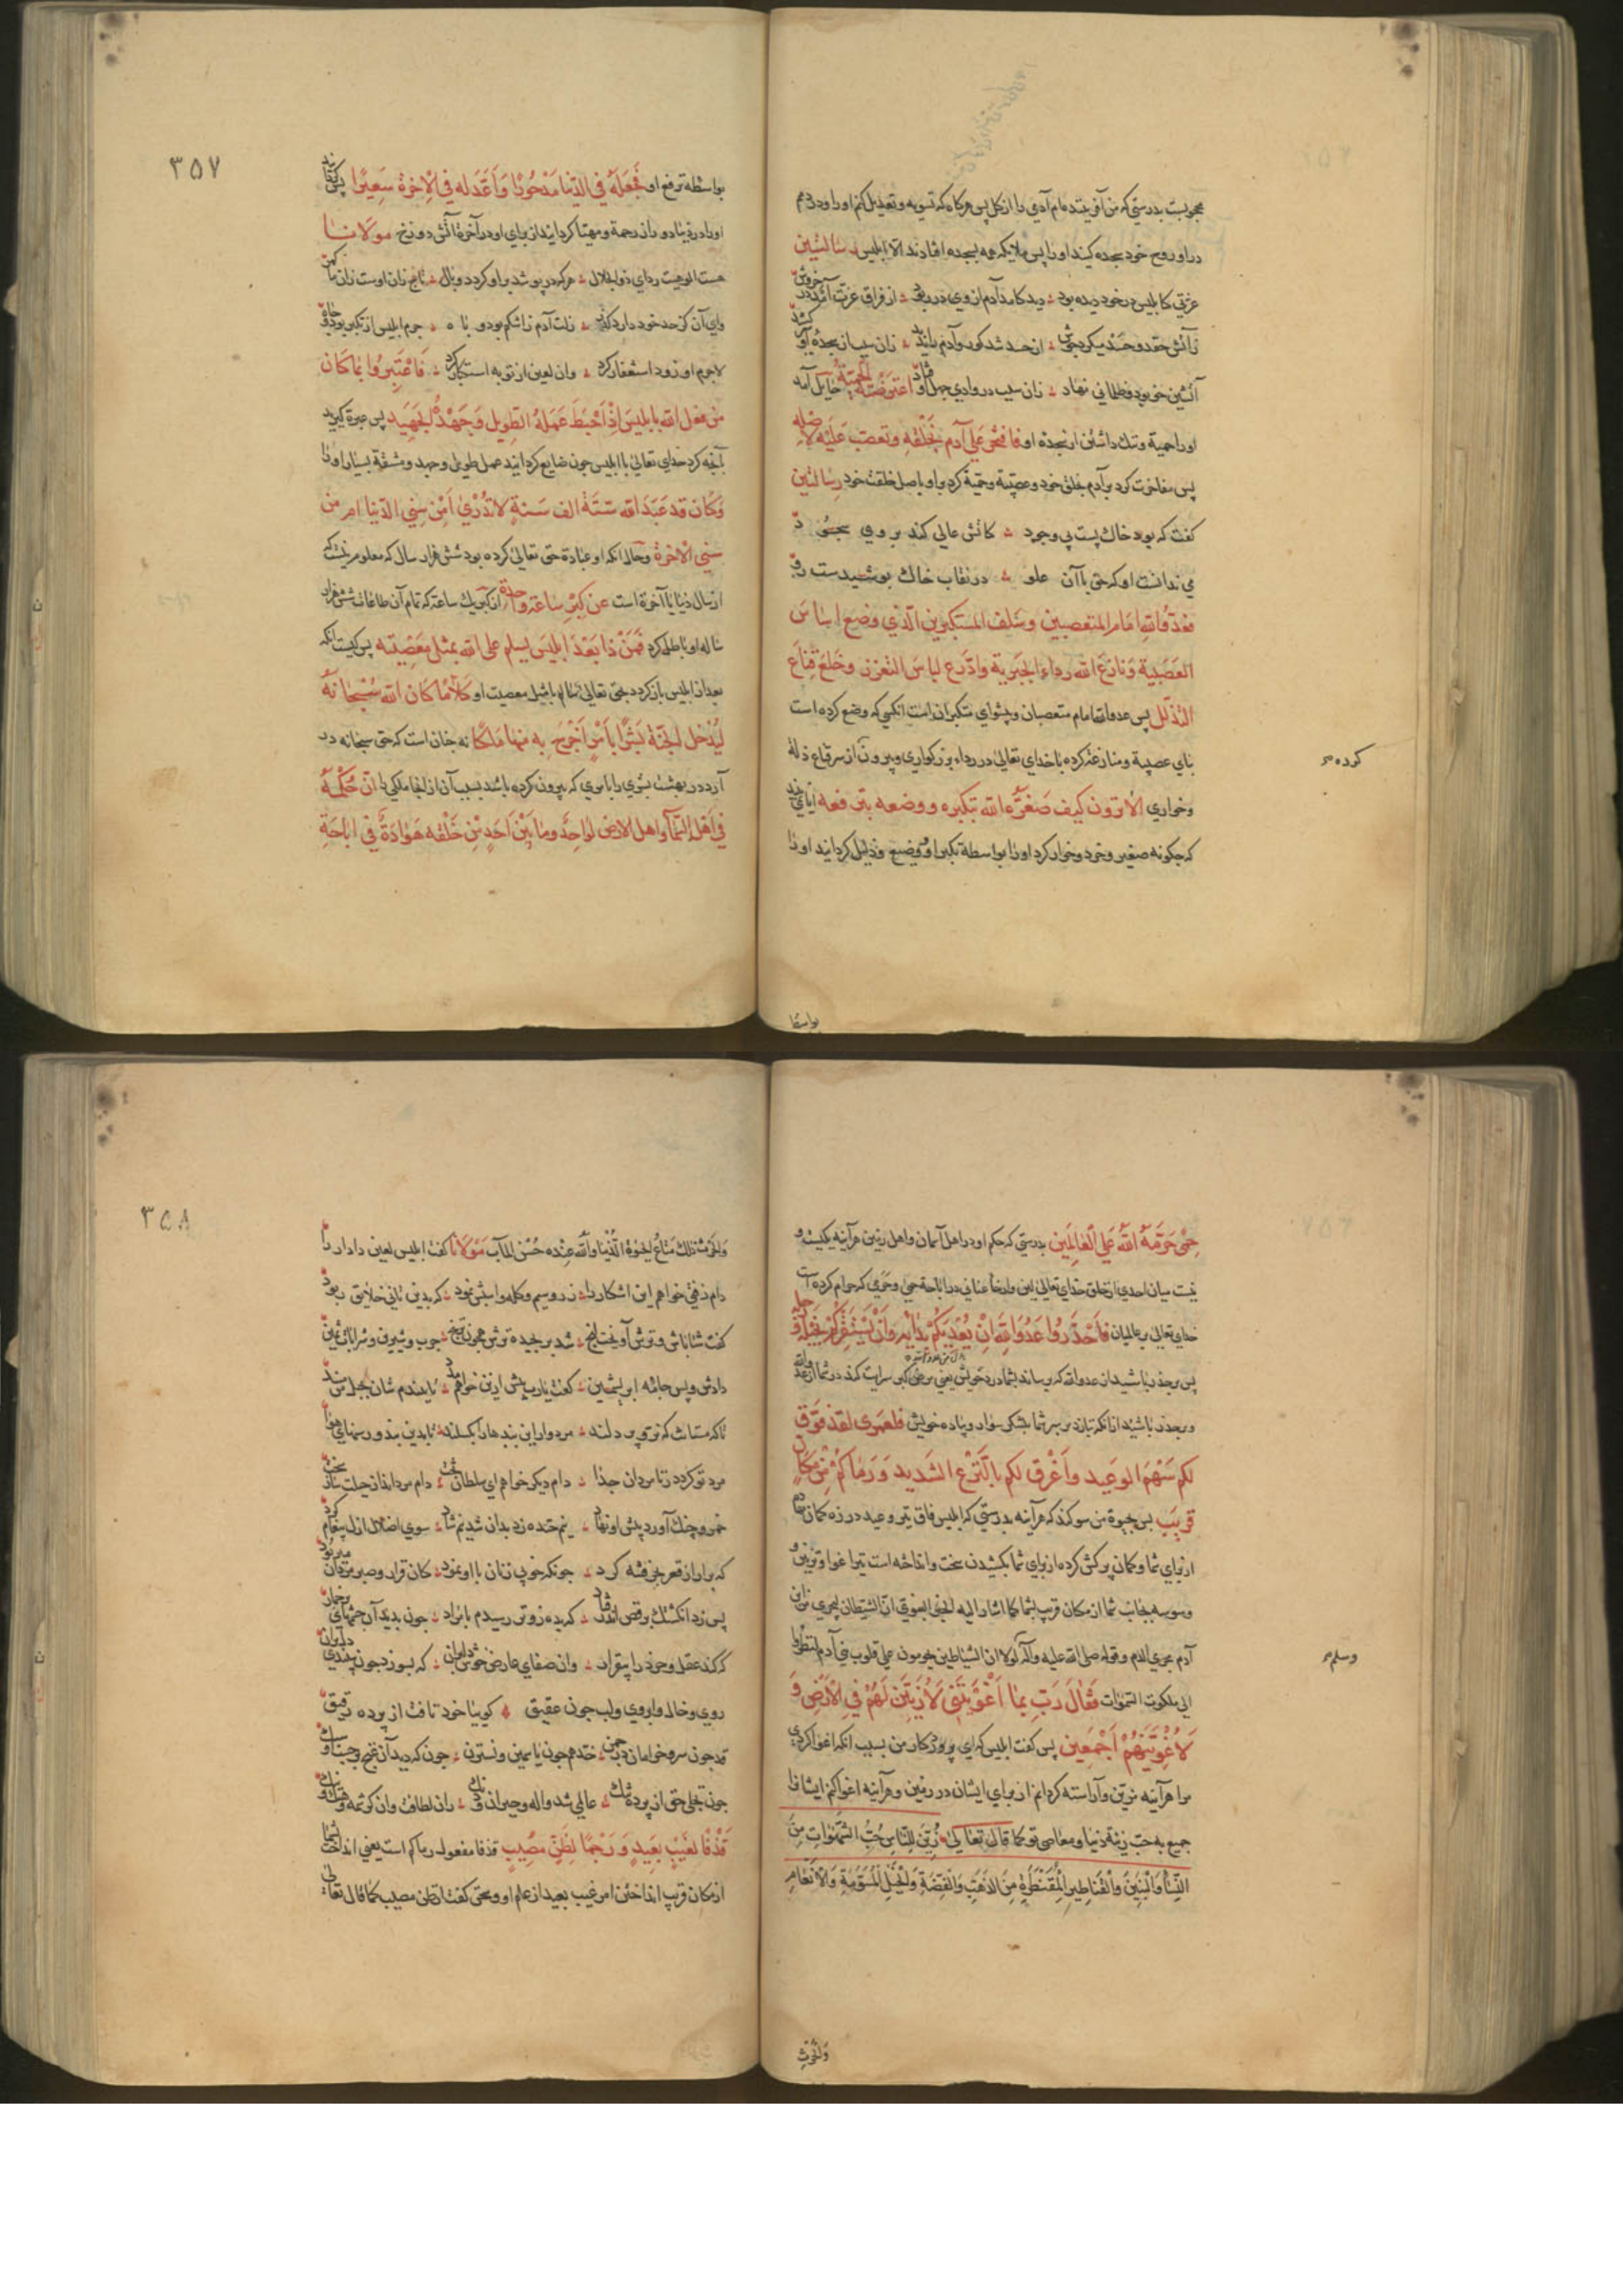 مجوبست بدرستی که من آفریننده‌ام آدمی را از کل پس هرکاه که تسویه و تعدیل کنم اورا و در دمم
در او روح خود بسجده کنید اورا پس ملایکه همه بسجده افتادند الا ابلیس رسالتین
عزتی کابلیس در خود دیده بود دید کامد آدم از وی در ربود از فراق عزت آتش در
زآتش حقد و حسد میکرد جوش از حسد شد کور و آدم را ندید زان سبب از سجده او سر کشید
آتشین خو بود و ظلمانی نهاد زان سبب در وادی جهل اوفتاد اعترضته الحمیة حایل آمد
اورا حمیة و ننک داشتن از سجده او فافتخر علی آدم بخلقه و تعصب علیه لاصله
پس مفاخرت کرد بر آدم بخلق خود و عصبیة و حمیة کرد بر او باصل خلقت خود رسالتین
کفت که بود خاک پست بی وجود کاتش عالی کند بر وی سجود
می ندانست او که حق با آن علو در نقاب خاک پوشیدست رو
فعدو الله امام المتعصبین و سلف المستکبرین الذی وضع اساس
العصبیة و نازع الله رداء الجبریة و ادرع لباس التعزز و خلع قناع
التذلل پس عدو الله امام متعصبان و پیشوای متکبران است انکسی که وضع کرده است
بنای عصبیة و منازعه کرده با خدای تعالی در رداء بزرکواری و بیرون از سر قناع ذلة
کرده
و خواری الا ترون کیف صغره الله بتکبره و وضعه بترفعه ایا نمی بینید
که چکونه صغیر و خرد و خوار کرد اورا بواسطة تکبر او و وضیع و ذلیل کردانید اورا
بواسطه
۳۵۷
بواسطه ترفع او فجعله فی الدنیا مدحورا و اعد له فی الاخرة سعیرا پس کردانید
اورا در دنیا دور از رحمة و مهیا کردانید از برای او در آخرة آتش دوزخ مولانا
هست الوهیت ردای ذو الجلال هر که در پوشد بر او کردد وبال تاج از آن اوست زان ما کمر
وای آن کز حد خود دارد کذر زلت آدم ز اشکم بود و باه جرم ابلیس از تکبر بود و جاه
لاجرم او زود استغفار کرد وان لعین از توبه استکبار کرد فاعتبروا بما کان
من فعل الله بابلیس اذ احبط عمله الطویل و جهده الجهید پس عبرة کیرید
بآنچه کرد خدای تعالی با ابلیس چون ضایع کردانید عمل طویل و جهد و مشقة بسیار اورا
و کان قد عبد الله ستة الف سنة لا تدری امن سنی الدنیا ام من
سنی الاخرة و حال انکه او عبادة حق تعالی کرده بود شش هزار سال که معلوم نیست که
از سال دنیا یا آخرة است عن کبر ساعة واحدة از کبر یک ساعته که تمام آن طاعات شش هزار
ساله او باطل کرد فمن ذا بعد ابلیس یسلم علی الله بمثل معصیته پس کیست انکه
بعد از ابلیس باز کردد بحق تعالی سالم با مثل معصیت او کلا ما کان الله سبحانه
لیدخل الجنة بشرا بامر اخرج به منها ملکا نه چنان است که حق سبحانه در
آرد در بهشت بشری را بامری که بیرون کرده باشد بسبب آن از انجا ملکی را ان حکمه
فی اهل السماء و اهل الارض لواحد و ما بین الله و بین احد من خلقه هوادة فی اباحة
حمی حرمه الله علی العالمین بدرستی که حکم او در اهل آسمان و اهل زمین هرآینه یکیست و
نیست میان احدی از خلق خدای تعالی لین و ارخاء عنانی در اباحة حمی و حرمی که حرام کرده است
خدای تعالی بر عالمیان فاحذروا عدو الله ان یعدیکم بدائه و ان یستفزکم بخیله و رجله
پس برحذر باشید از عدو الله که برساند بشما درد خویش یعنی مرض کبر سرایت کند در شما از عدو الله
و برحذر باشید از انکه بتازد بر سر شما بلشکر سوار و پیاده خویش فلعمری لقد فوق
لکم سهم الوعید و اغرق لکم بالنزع الشدید و رماکم من مکان
قریب پس بحیوة من سوکند که هرآینه بدرستی که ابلیس فاق تیر وعید در زه کمان نهاده
از برای شما و کمان پر کش کرده از برای شما بکشیدن سخت و انداخته است تیر اغوا و تزیین و
وسوسه بجانب شما از مکان قریب بشما کما اشار الیه الخبر النبوی ان الشیطان لیجری من ابن
آدم مجری الدم و قوله صلی الله علیه و آله لولا ان الشیاطین یحومون علی قلوب بنی آدم لنظروا
وسلم
الی ملکوت السموات فقال رب بما اغویتنی لازینن لهم فی الارض و
لاغوینهم اجمعین پس کفت ابلیس که ای پروردکار من بسبب انکه اغوا کردی
مرا هرآینه تزیین و آراسته کردانم از برای ایشان در زمین و هرآینه اغوا کنم ایشانرا
جمیع به حب زینة دنیا و معاصی تو کما قال تعالی زین للناس حب الشهوات من
النساء و البنین و القناطیر المقنطرة من الذهب و الفضة و الخیل المسومة و الانعام
والحرث
۳۵۸
والحرث ذلک متاع الحیوة الدنیا و الله عنده حسن المآب مولانا کفت ابلیس لعین دادار را
دام زفتی خواهم این اشکار را زر و سیم و کله اسبش نمود که بدین تانی خلایق ربود
کفت شاباش و ترش آویخت لنج شد برنجیده ترش همچون ترنج چرب و شیرین و شرابات ثمین
دادش و پس جامه ابریشمین کفت یارب بیش ازین خواهم مدد تا ببندم شان بحبل من مسد
تا که مستانت که نر و پر دلند مردوار این بندها را بکسلند تا بدین بند و رسنهای هوا
مرد تو کردد ز نامردان جدا دام دیکر خواهم ای سلطان تخت دام مردانداز حیلت ساز سخت
خمر و چنک آورد پیش او نهاد نیم خنده زد بدان شد نیم شاد سوی اضلال ازل پیغام کرد
که برآر از قعر بحر فتنه کرد چونکه خوبی زنان با او نمود کان قرار و صبر مردان می ربود
پس زد انکشتک برقص اندر فتاد که بده زوتر رسیدم با مراد چون بدید آن چشمهای پرخمار
که کند عقل و خرد را بیقرار وان صفای عارض خوش دلبران که بسوزد چون سپندی دل بران
روی و خال و ابروی و لب چون عقیق کوییا خود تافت از پرده رقیق
قد چون سرو خرامان در چمن خد هم چون یاسمین و نسترن چون که دید آن غنج و حست او سبک
چون تجلی حق از پرده تنک عالمی شد واله و حیران و دنک زان لطافت وان کرشمه و شنک
قذفا بغیب بعید و رجما بظن مصیب قذفا مفعول رماکم است یعنی انداخت شما
از مکان قریب انداختن امر غیب بعید از علم او و سخنی کفت از ظن مصیب کما قال تعالی